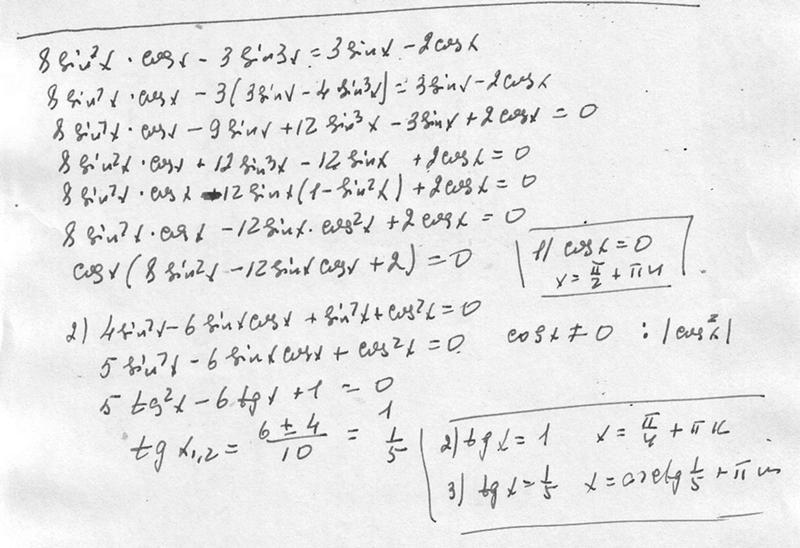 8 sin²x · cosx - 3 sin3x = 3 sinx - 2cosx
8 sin²x · cosx - 3(3sinx - 4 sin³x) = 3 sinx - 2cosx
8 sin²x · cosx - 9 sinx + 12 sin³x - 3 sinx + 2 cosx = 0
8 sin²x · cosx + 12 sin³x - 12 sinx + 2cosx = 0
8 sin²x · cosx - 12 sinx(1 - sin²x) + 2cosx = 0
8 sin²x · cosx - 12 sinx · cos²x + 2 cosx = 0
cosx(8 sin²x - 12 sinx cosx + 2) = 0
1) cosx = 0
x = π/2 + πn
2) 4 sin²x - 6 sinx cosx + sin²x + cos²x = 0
5 sin²x - 6 sinx cosx + cos²x = 0 cosx ≠ 0 : |cos²x|
5 tg²x - 6 tgx + 1 = 0
tg x₁,₂ = (6 ± 4)/10 = 1
1/5
2) tgx = 1 x = π/4 + πk
3) tgx = 1/5 x = arctg 1/5 + πm